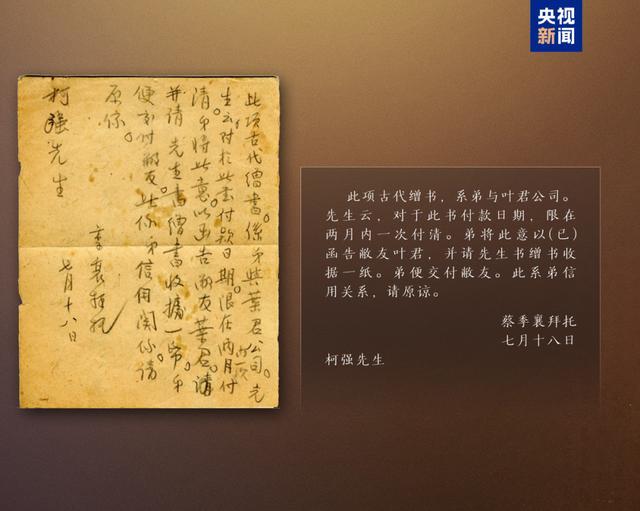 央视
新闻
此项古代缯書。係弟與葉君公司。先
生云对於此書付款日期限在两月内一次付
清。弟将此意以函告敝友葉君。請
并請 先生書缯書收據一帋。弟
便交付敝友。此係弟信用関係請
原諒。
季襄拜托
七月十八日
柯强先生
此项古代缯书，系弟与叶君公司。
先生云，对于此书付款日期，限在
两月内一次付清。弟将此意以(已)
函告敝友叶君，并请先生书缯书收
据一纸。弟便交付敝友。此系弟信
用关系，请原谅。
蔡季襄拜托
七月十八日
柯强先生